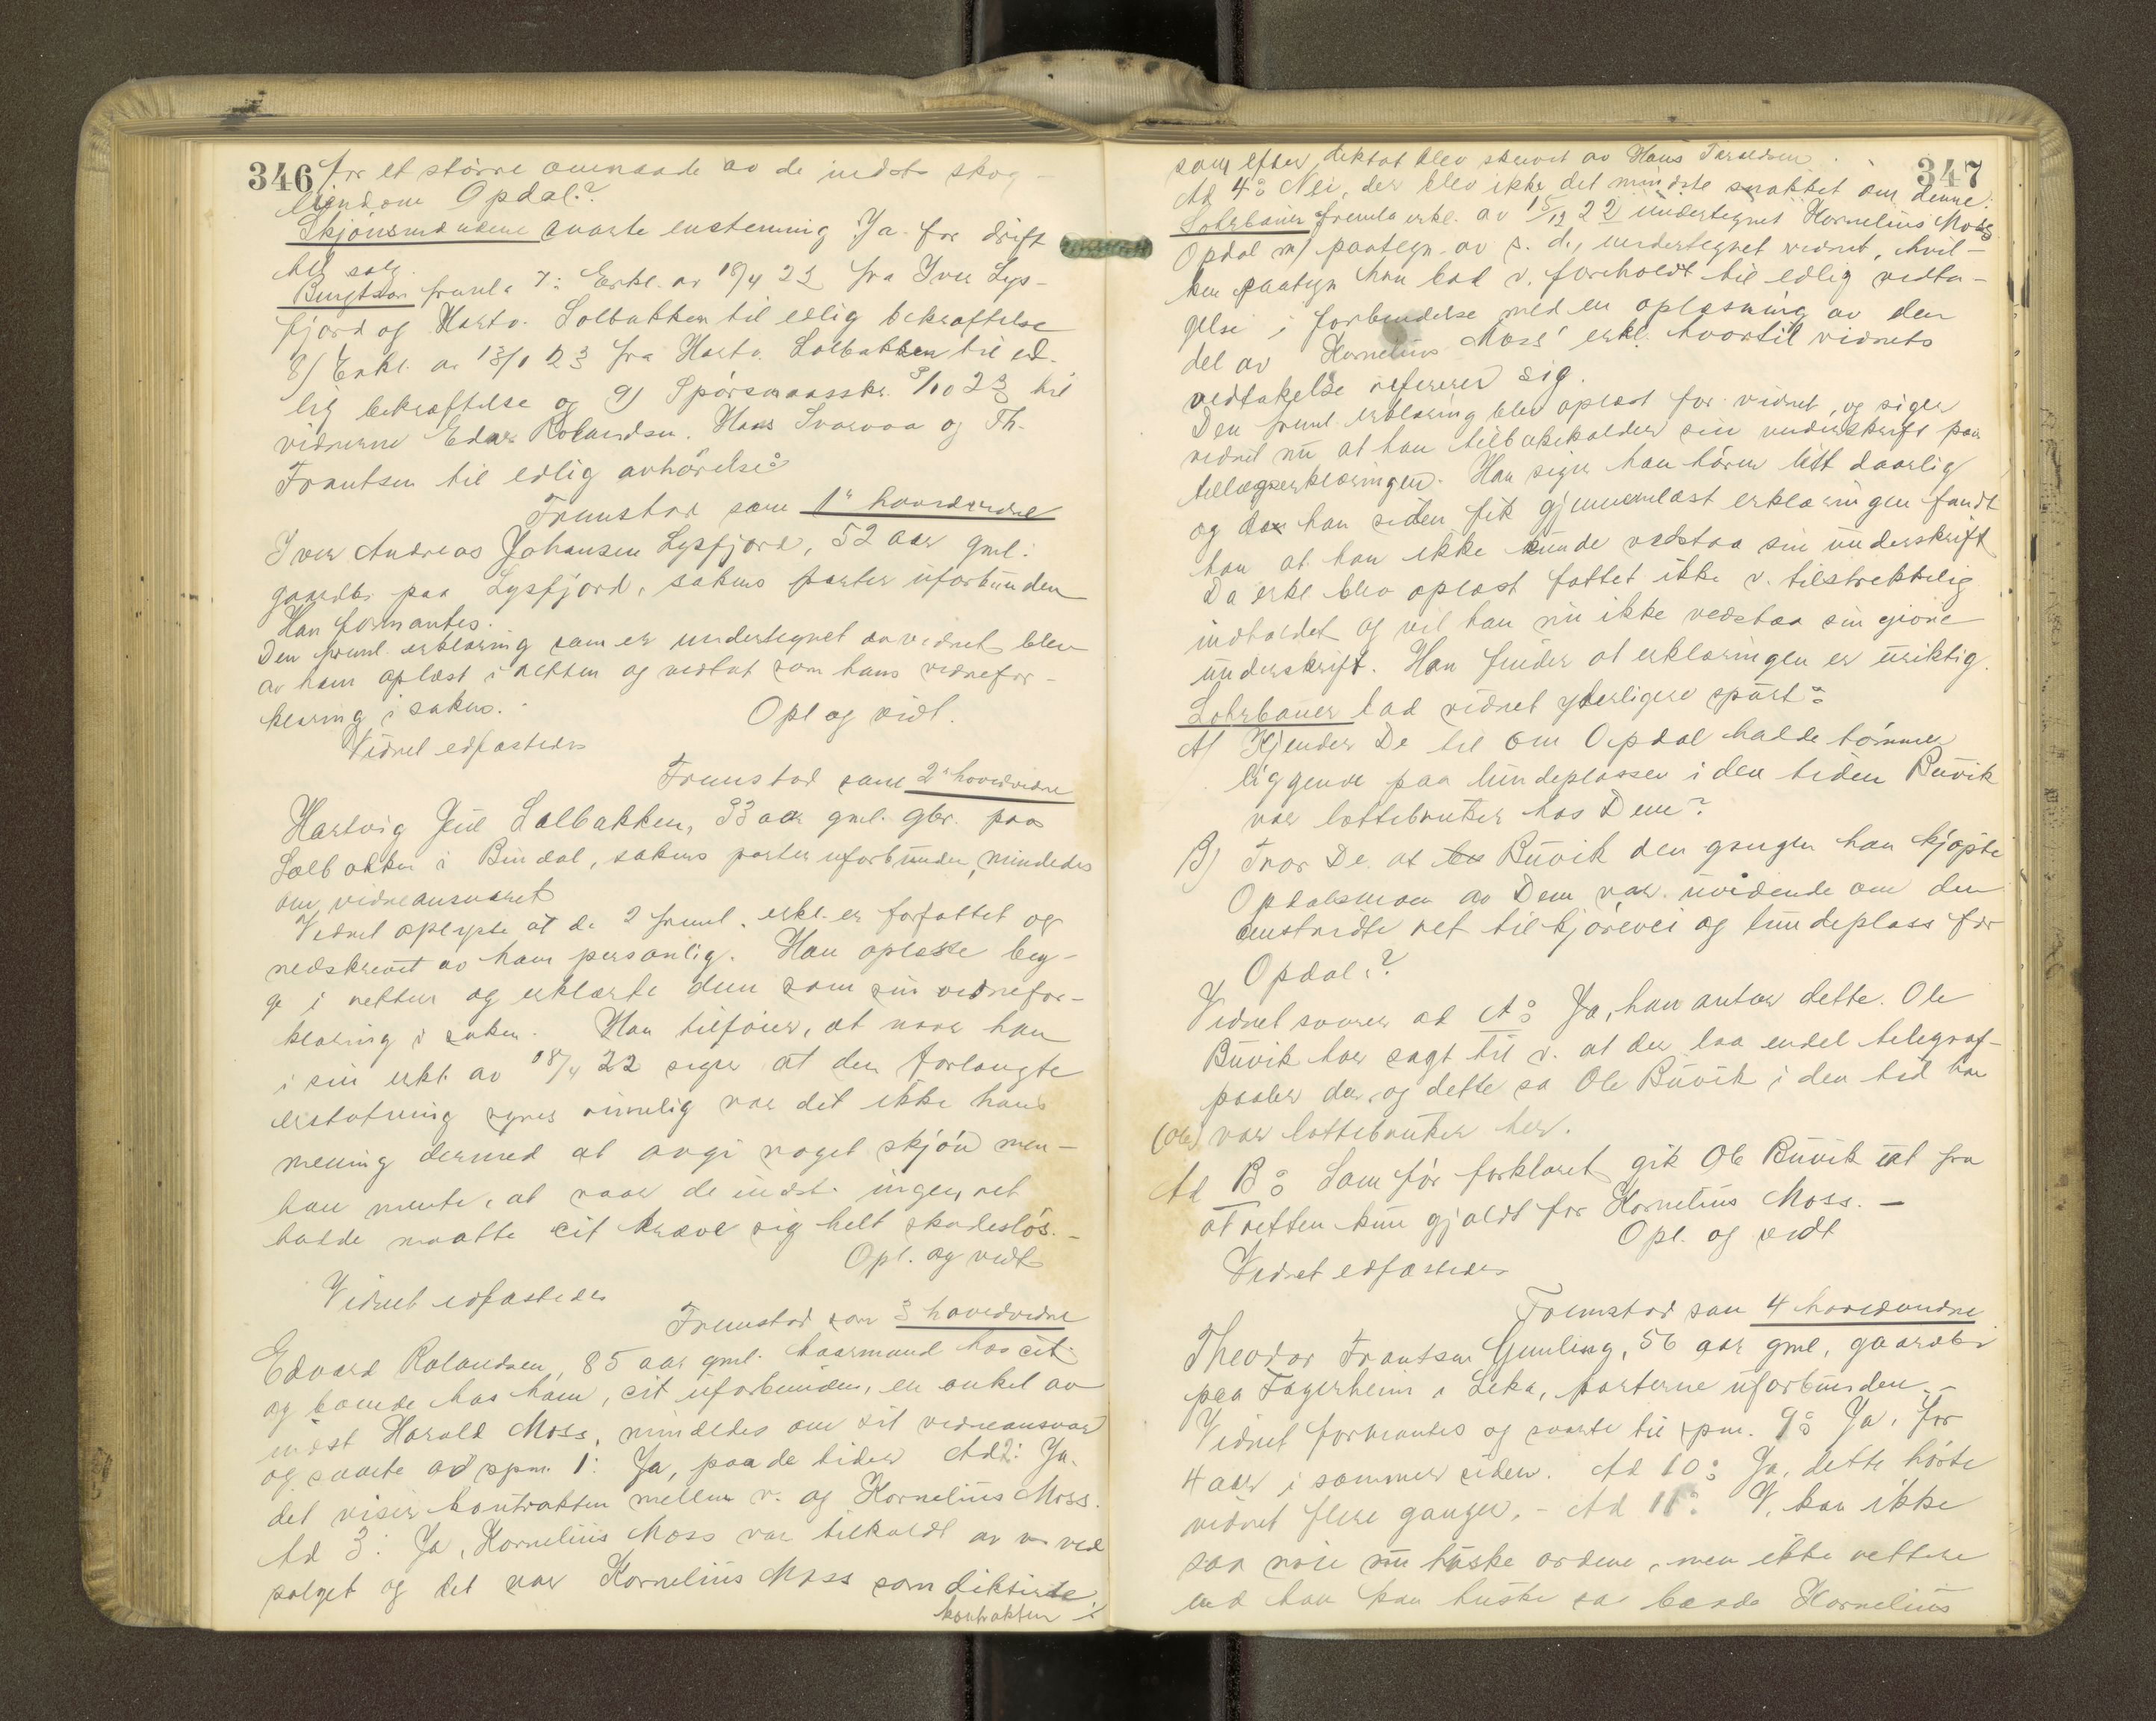 346 for et større omraade av de indst. skog-
eiendom Opdal?
Skjønsmændene svarte enstemmig Ja. for drift
til salg.
Bengtson freml. 7: Erkl. av 18/4 22 fra Iver Lys-
fjord og Hartv. Solbakken til edlig bekræftelse
8) Erkl. av 13/1 23 fra Hartv. Solbakken til ed-
lig bekræftelse og 9) Spørsmaalsskr. 3/10 23 til
vidnerne Edvar Rolandsen. Hans Svarvaa og Th.
Frantsen til edlig avhørelse:
Fremstod som 1ste hovedvidne
Iver Andreas Johansen Lysfjord, 52 aar gml.
gaardbr. paa Lysfjord, sakens parter uforbunden
Han formantes.
Den freml. erklæring som er undertegnet av vidnet blev
av ham oplæst i retten og vedtat som hans vidnefor-
klaring i saken.
Opl og vidt.
Vidnet edfæstedes
Fremstod som 2det hovedvidne
Hartvig Juul Solbakken, 33 aar gml. gbr. paa
Solbakken i Bindal, sakens parter uforbunden, mindedes
om vidneansvaret
Vidnet oplyste at de 2 freml. erkl. er forfattet og
nedskrevet av ham personlig. Han oplæste beg-
ge i retten og erklærte dem som sin vidnefor-
klaring i saken. Han tilføier, at naar han
i sin erkl. av 18/4 22 siger at den forlangte
erstatning synes rimelig var det ikke hans
mening dermed at avgi noget skjøn men
han mente, at naar de indst. ingen ret
hadde maatte cit kræve sig helt skadesløs.-
Opl. og vedt
Vidnet edfæstedes
Fremstod som 3 hovedvidne
Edvard Rolandsen, 85 aar gml. kaarmand hos cit.
og boende hos ham, cit uforbunden, en onkel av
indst Harald Moss, mindedes om sit vidneansvar
og svarte ad spm. 1: Ja, paa de tider Ad 2: Ja.
det viser kontrakten mellem v. og Kornelius Moss.
Ad 3: Ja, Kornelius Moss var tilkaldt av v. ved
salget og det var Kornelius Moss som dikterte
kontrakten
347
som efter diktat blev skrevet av Hans
Ad 4: Nei, der blev ikke det mindste snakket om denne.
Lohrbauer fremla erkl. av 15/12 22 undertegnet Kornelius Moss
Opdal m/ paategn. av s. d., undertegnet vidnet, hvil-
ken paategn han bad v. foreholdt til edlig vedta-
gelse i forbindelse med en oplæsning av den
del av Kornelius Moss' erkl. hvortil vidnets
vedtakelse refererer sig.
Den freml. erklæring blev oplæst for vidnet, og siger
vidnet nu at han tilbakekalder sin underskrift paa
tillægserklæringen. Han siger han hører litt daarlig
og da han siden fik gjennemlæst erklæringen fandt
han at han ikke kunde vedstaa sin underskrift
Da erkl blev oplæst fattet ikke v. tilstrekkelig
indholdet og vil han nu ikke vedstaa sin givne
underskrift. Han finder at erklæringen er uriktig.
Lohrbauer bad vidnet yderligere spurt:
A) Kjender De til om Opdal hadde tømmer
liggende paa lundeplassen i den tiden Buvik
var lottebruker hos Dem?
B) Tror De at Buvik den gangen han kjøpte
Opdalsmoen av Dem var uvidende om den
omstridte ret til kjørevei og lundeplass for
Opdal.?
Vidnet svarer ad A: Ja, han antar dette. Ole
Buvik har sagt til v. at der laa endel telegraf-
paaler der, og dette sa Ole Buvik i den tid han
(Ole) var lottebruker her.
Ad B: Som før forklaret gik Ole Buvik ut fra
at retten kun gjaldt for Kornelius Moss. -
Opl. og vedt
Vidnet edfæstedes
Fremstod som 4 hovedvidne
Theodor Frantsen Gumling, 56 aar gml, gaardbr
paa Fagerheim i Leka, parterne uforbunden. -
Vidnet formantes og svarte til spm. 9: Ja, for
4 aar i sommer siden. Ad 10: Ja, dette hørte
vidnet flere ganger. - Ad 11: V. kan ikke
saa nøie nu huske ordene, men ikke rettere
end han kan huske sa baade Kornelius